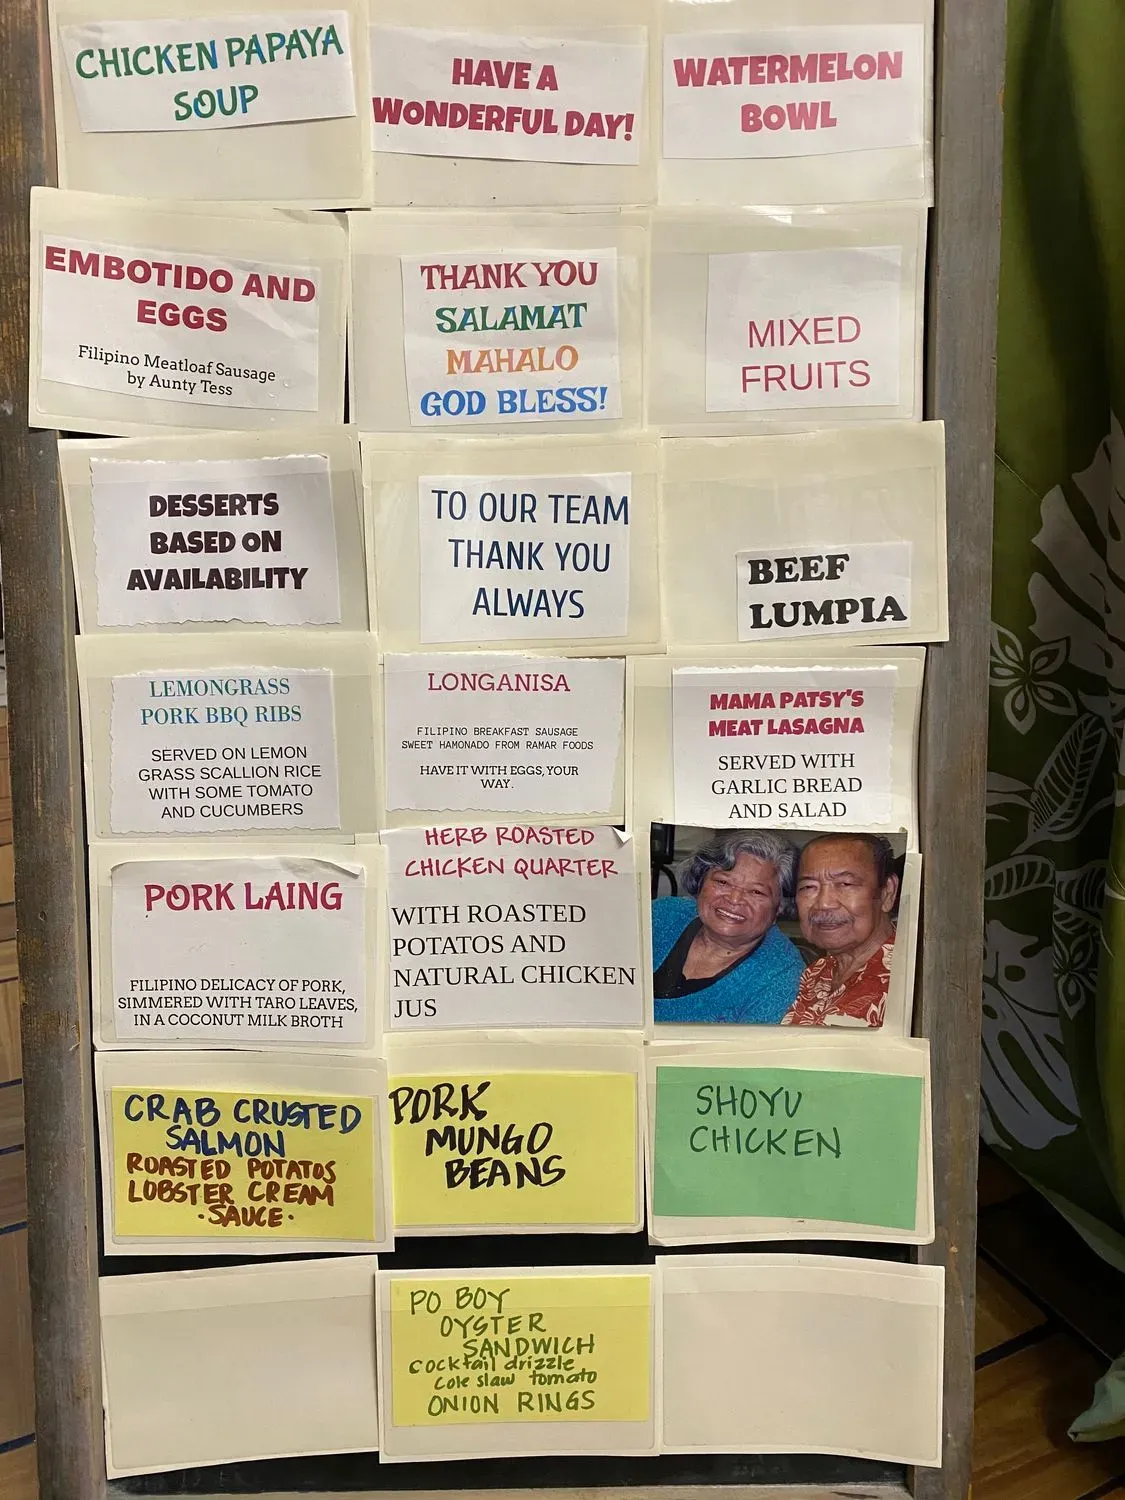 CHICKEN PAPAYA
SOUP
HAVE A
WONDERFUL DAY!
WATERMELON
BOWL
EMBOTIDO AND
EGGS
Filipino Meatloaf Sausage
by Aunty Tess
THANK YOU
SALAMAT
MAHALO
GOD BLESS!
MIXED
FRUITS
DESSERTS
BASED ON
AVAILABILITY
TO OUR TEAM
THANK YOU
ALWAYS
BEEF
LUMPIA
LEMONGRASS
PORK BBQ RIBS
SERVED ON LEMON
GRASS SCALLION RICE
WITH SOME TOMATO
AND CUCUMBERS
LONGANISA
FILIPINO BREAKFAST SAUSAGE
SWEET HAMONADO FROM RAMAR FOODS
HAVE IT WITH EGGS, YOUR
WAY.
MAMA PATSY'S
MEAT LASAGNA
SERVED WITH
GARLIC BREAD
AND SALAD
PORK LAING
FILIPINO DELICACY OF PORK,
SIMMERED WITH TARO LEAVES,
IN A COCONUT MILK BROTH
HERB ROASTED
CHICKEN QUARTER
WITH ROASTED
POTATOS AND
NATURAL CHICKEN
JUS
CRAB CRUSTED
SALMON
ROASTED POTATOS
LOBSTER CREAM
·SAUCE·
PORK
MUNGO
BEANS
SHOYU
CHICKEN
PO BOY
OYSTER
SANDWICH
cocktail drizzle
cole slaw tomato
ONION RINGS